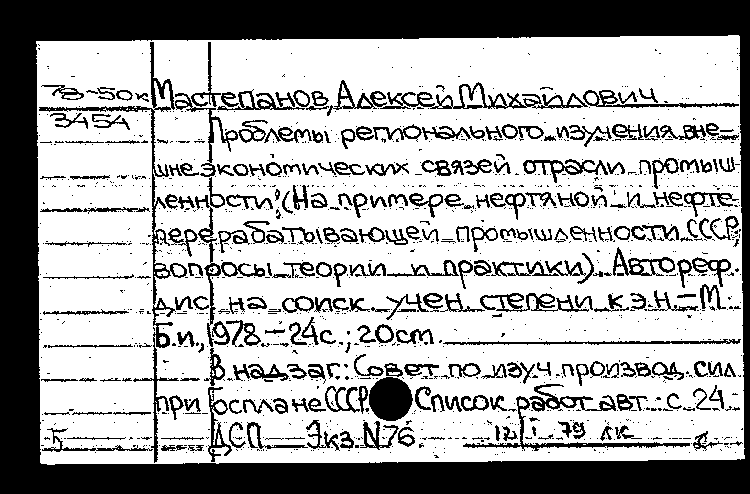 78-50к Мастепанов, Алексей Михайлович.
3454 Проблемы регионального изучения вне-
шнеэкономических связей отрасли промыш-
ленности: (На примере нефтяной и нефте-
перерабатывающей промышленности СССР,
вопросы теории и практики). Автореф.
дис. на соиск. учен. степени к.э.н. – М.:
Б.и., 1978. – 24с.; 20см.
В надзаг.: Совет по изуч. производ. сил
при Госплане СССР. Список работ авт.: с. 24
Б ДСП Экз. N76. 12/I-79 лк